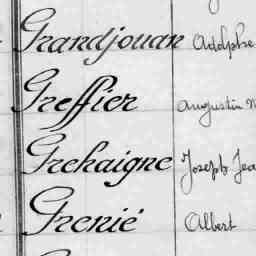 Grandjouan Adolphe
Greffier Augustin
Grehaigne Joseph
Grenié Albert